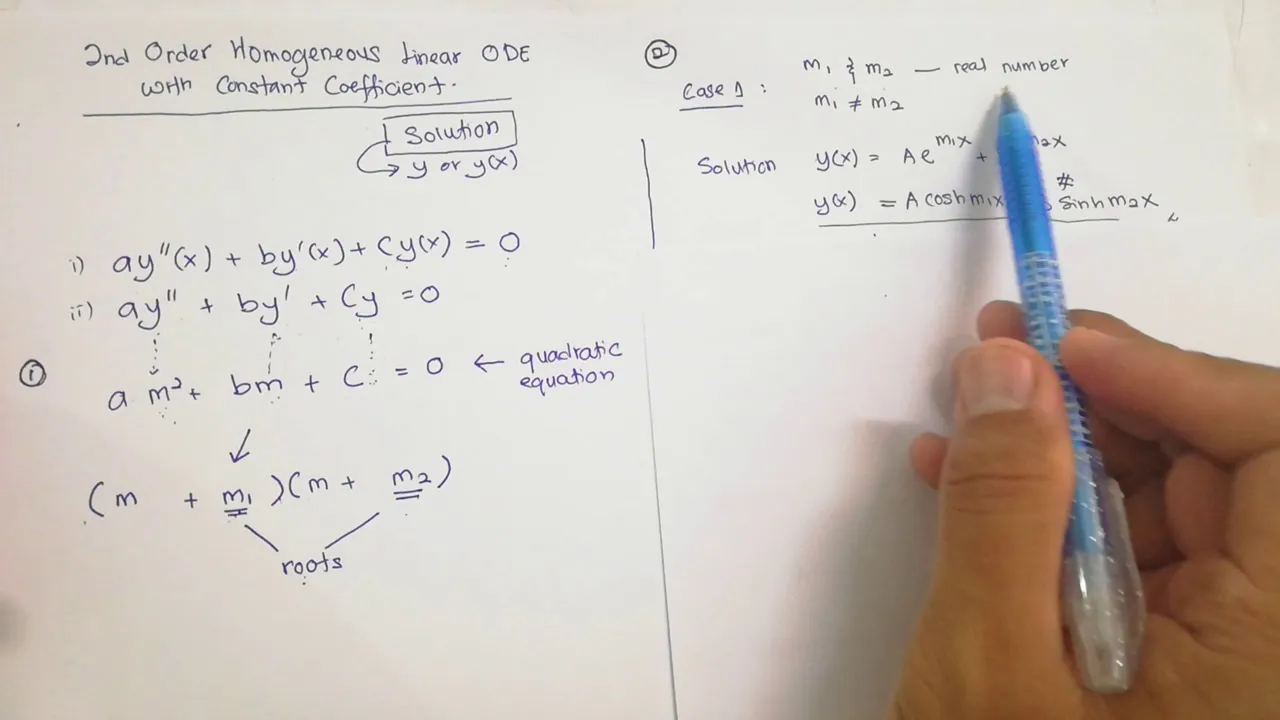 2nd Order Homogeneous Linear ODE
with Constant Coefficient.
Solution
y or y(x)
i) ay''(x) + by'(x) + Cy(x) = 0
ii) ay'' + by' + Cy = 0
①
a m² + bm + C = 0 ← quadratic
equation
(m + m₁)(m + m₂)
roots
②
Case 1 :
m₁ & m₂ — real number
m₁ ≠ m₂
Solution y(x) = A e^m₁x +
#
y(x) = A cosh m₁x sinh m₂x